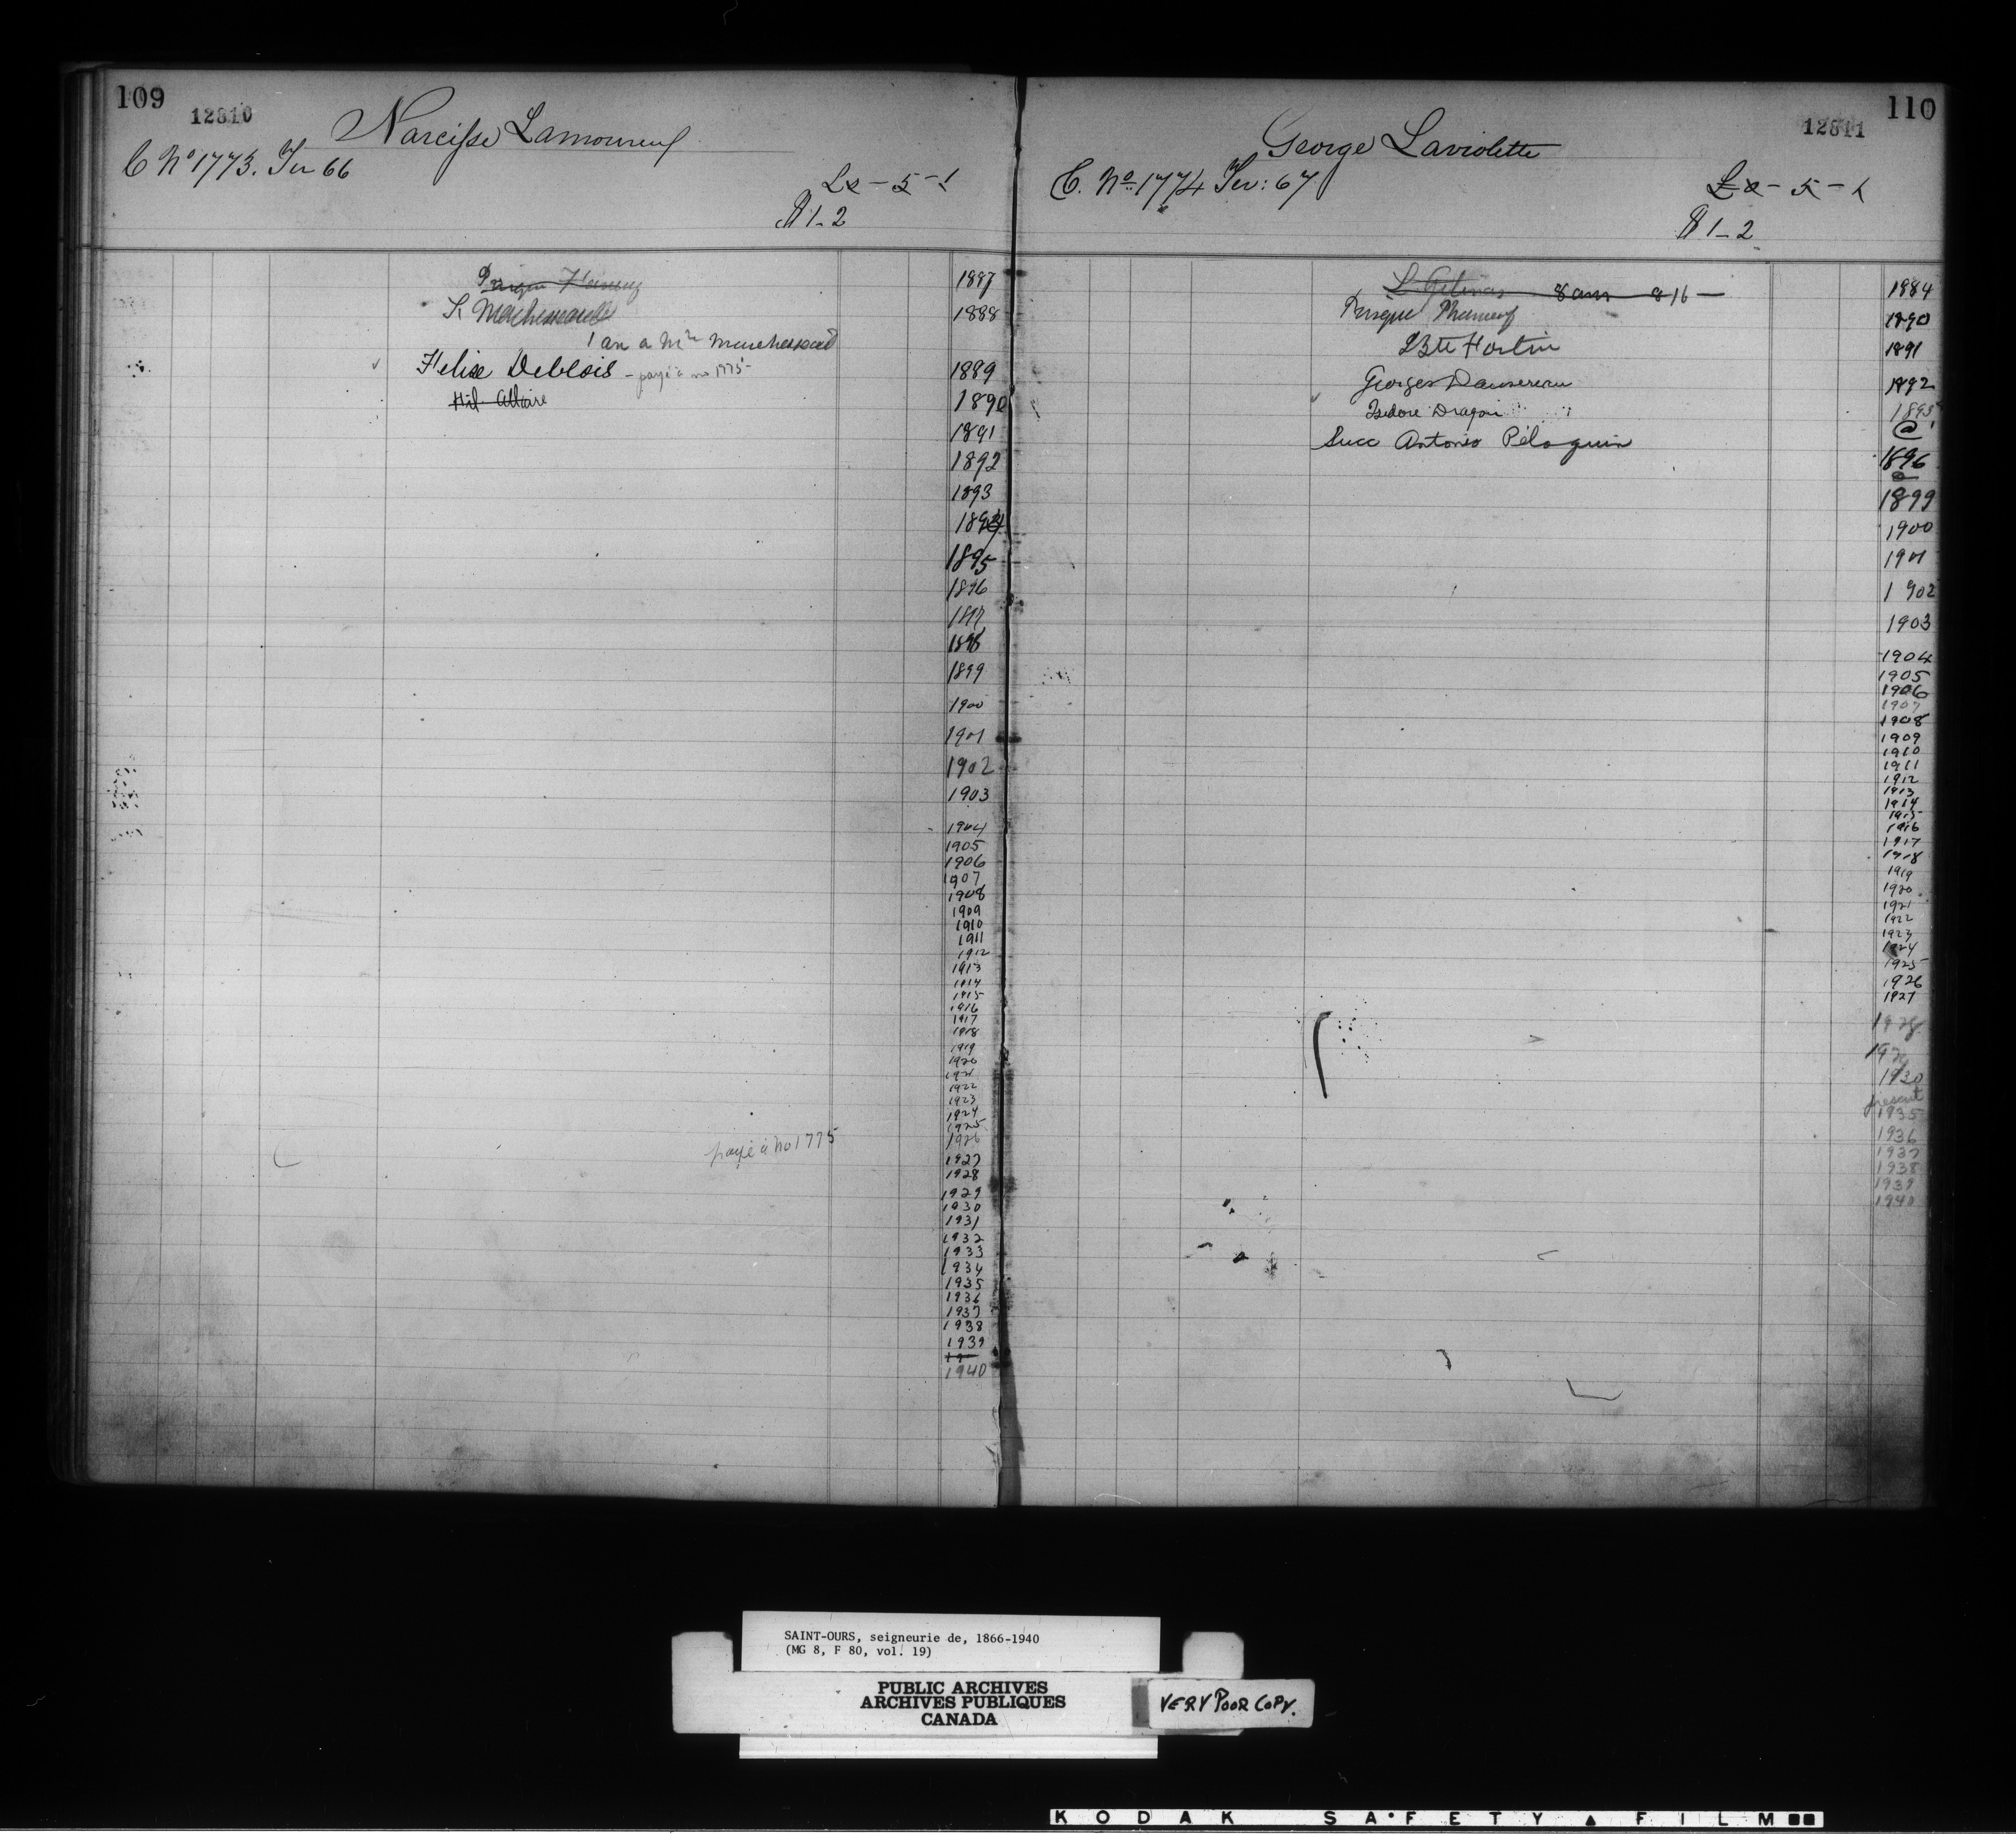 109
12810
Narcisse Lamoureux
C No 1773. Ter 66
£x - 5 - 1
$ 1-2
1887
K Marchessault
1888
1 an a Mde Marchessault
Felix Deblois - payé à no 1775 -
1889
Hil. Allaire
1890
1891
1892
1893
1894
1895
1896
1897
1898
1899
1900
1901
1902
1903
1904
1905
1906
1907
1908
1909
1910
1911
1912
1913
1914
1915
1916
1917
1918
1919
1920
1921
1922
1923
1924
1925
1926
payé à no 1775
1927
1928
1929
1930
1931
1932
1933
1934
1935
1936
1937
1938
1939
19
1940
110
12811
George Laviolette
C. No. 1774 Ter: 67
£x - 5 - 1
$ 1-2
L Gelinas 8 am 816 -
1884
Phaneuf
1890
Bte Fortin
1891
Georges Dansereau
1892
Isidore Dragon
1895
@
Succ Antonio Péloquin
1896
@
1899
1900
1901
1902
1903
1904
1905
1906
1907
1908
1909
1910
1911
1912
1913
1914
1915
1916
1917
1918
1919
1920
1921
1922
1923
1924
1925
1926
1927
1928
1929
1930
present
1935
1936
1937
1938
1939
1940
SAINT-OURS, seigneurie de, 1866-1940
(MG 8, F 80, vol. 19)
PUBLIC ARCHIVES
ARCHIVES PUBLIQUES
CANADA
VERY POOR COPY.
KODAK SAFETY FILM